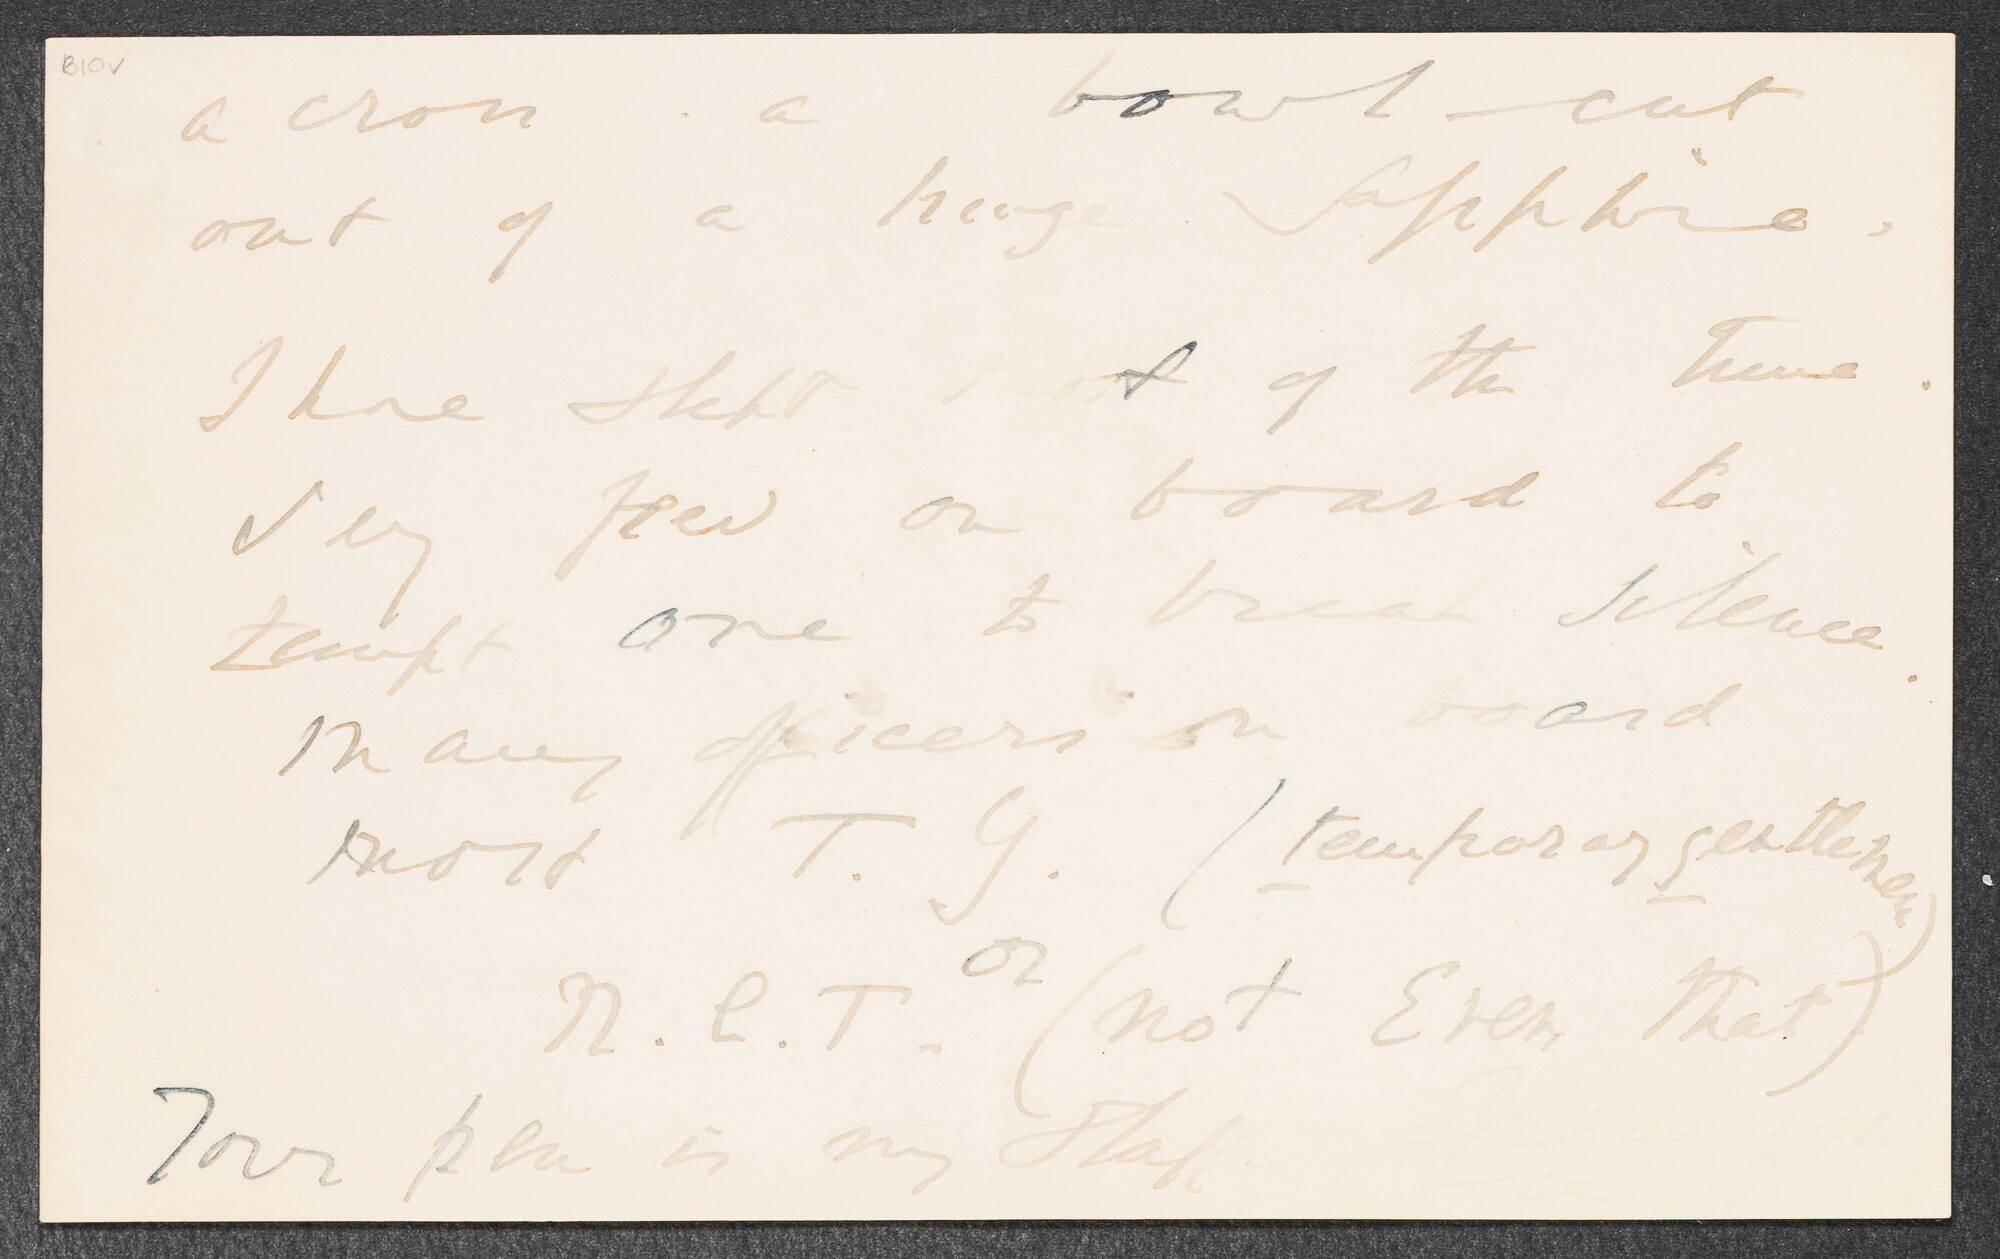 B10v
across a bowl cut
out of a huge Sapphire.
I have slept most of the time.
Very few on board to
tempt one to break silence.
Many officers on board
most T. G. (temporary gentlemen)
or
N. E. T. (not Even that)
Your pen is my staff. Ever your
love